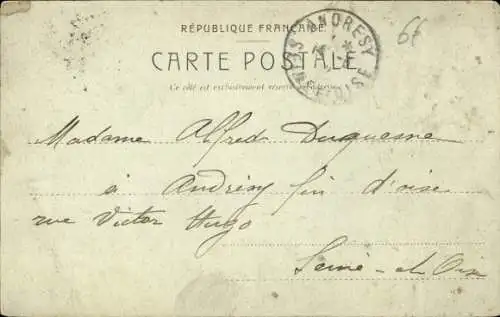 RÉPUBLIQUE FRANÇAISE
ANDRESY
CARTE POSTALE
Ce côté est exclusivement réservé
Madame Alfred Duquesne
à Andrésy fin d'oise
rue Victor Hugo
Seine-et Oise